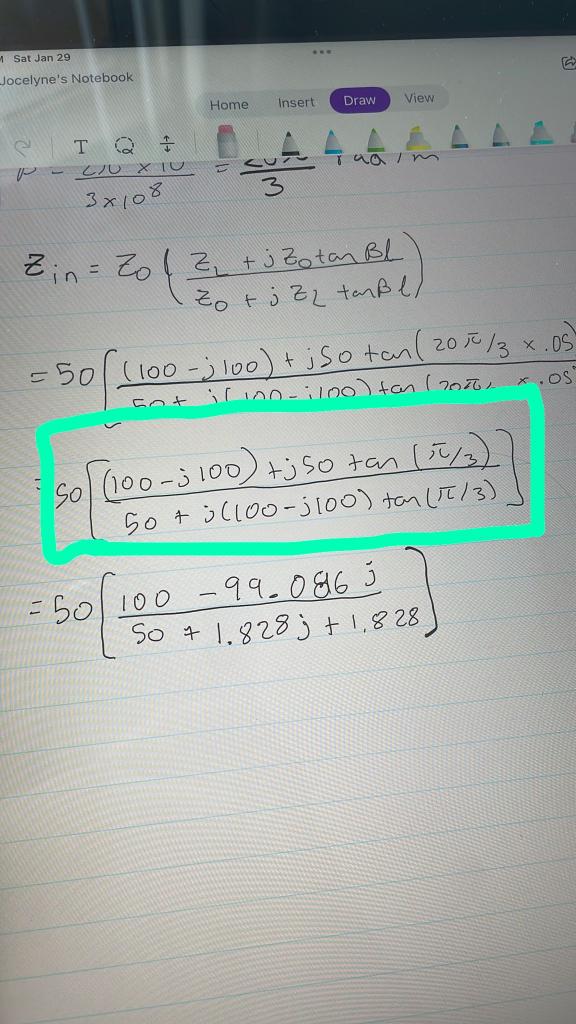 Sat Jan 29
Jocelyne's Notebook
Home Insert Draw View
T
3x10⁸ = 3 rad/m
Zin = Z₀ ( Z_L + j Z₀ tan βl / Z₀ + j Z_L tan βl )
= 50 [ (100 - j100) + j50 tan( 20π/3 x .05) / 50 + j(100 - j100) tan (20π/ x .05 ]
= 50 [ (100 - j100) + j50 tan (π/3) / 50 + j(100 - j100) tan (π/3) ]
= 50 [ 100 - 99.086 j / 50 + 1.828 j + 1.828 ]